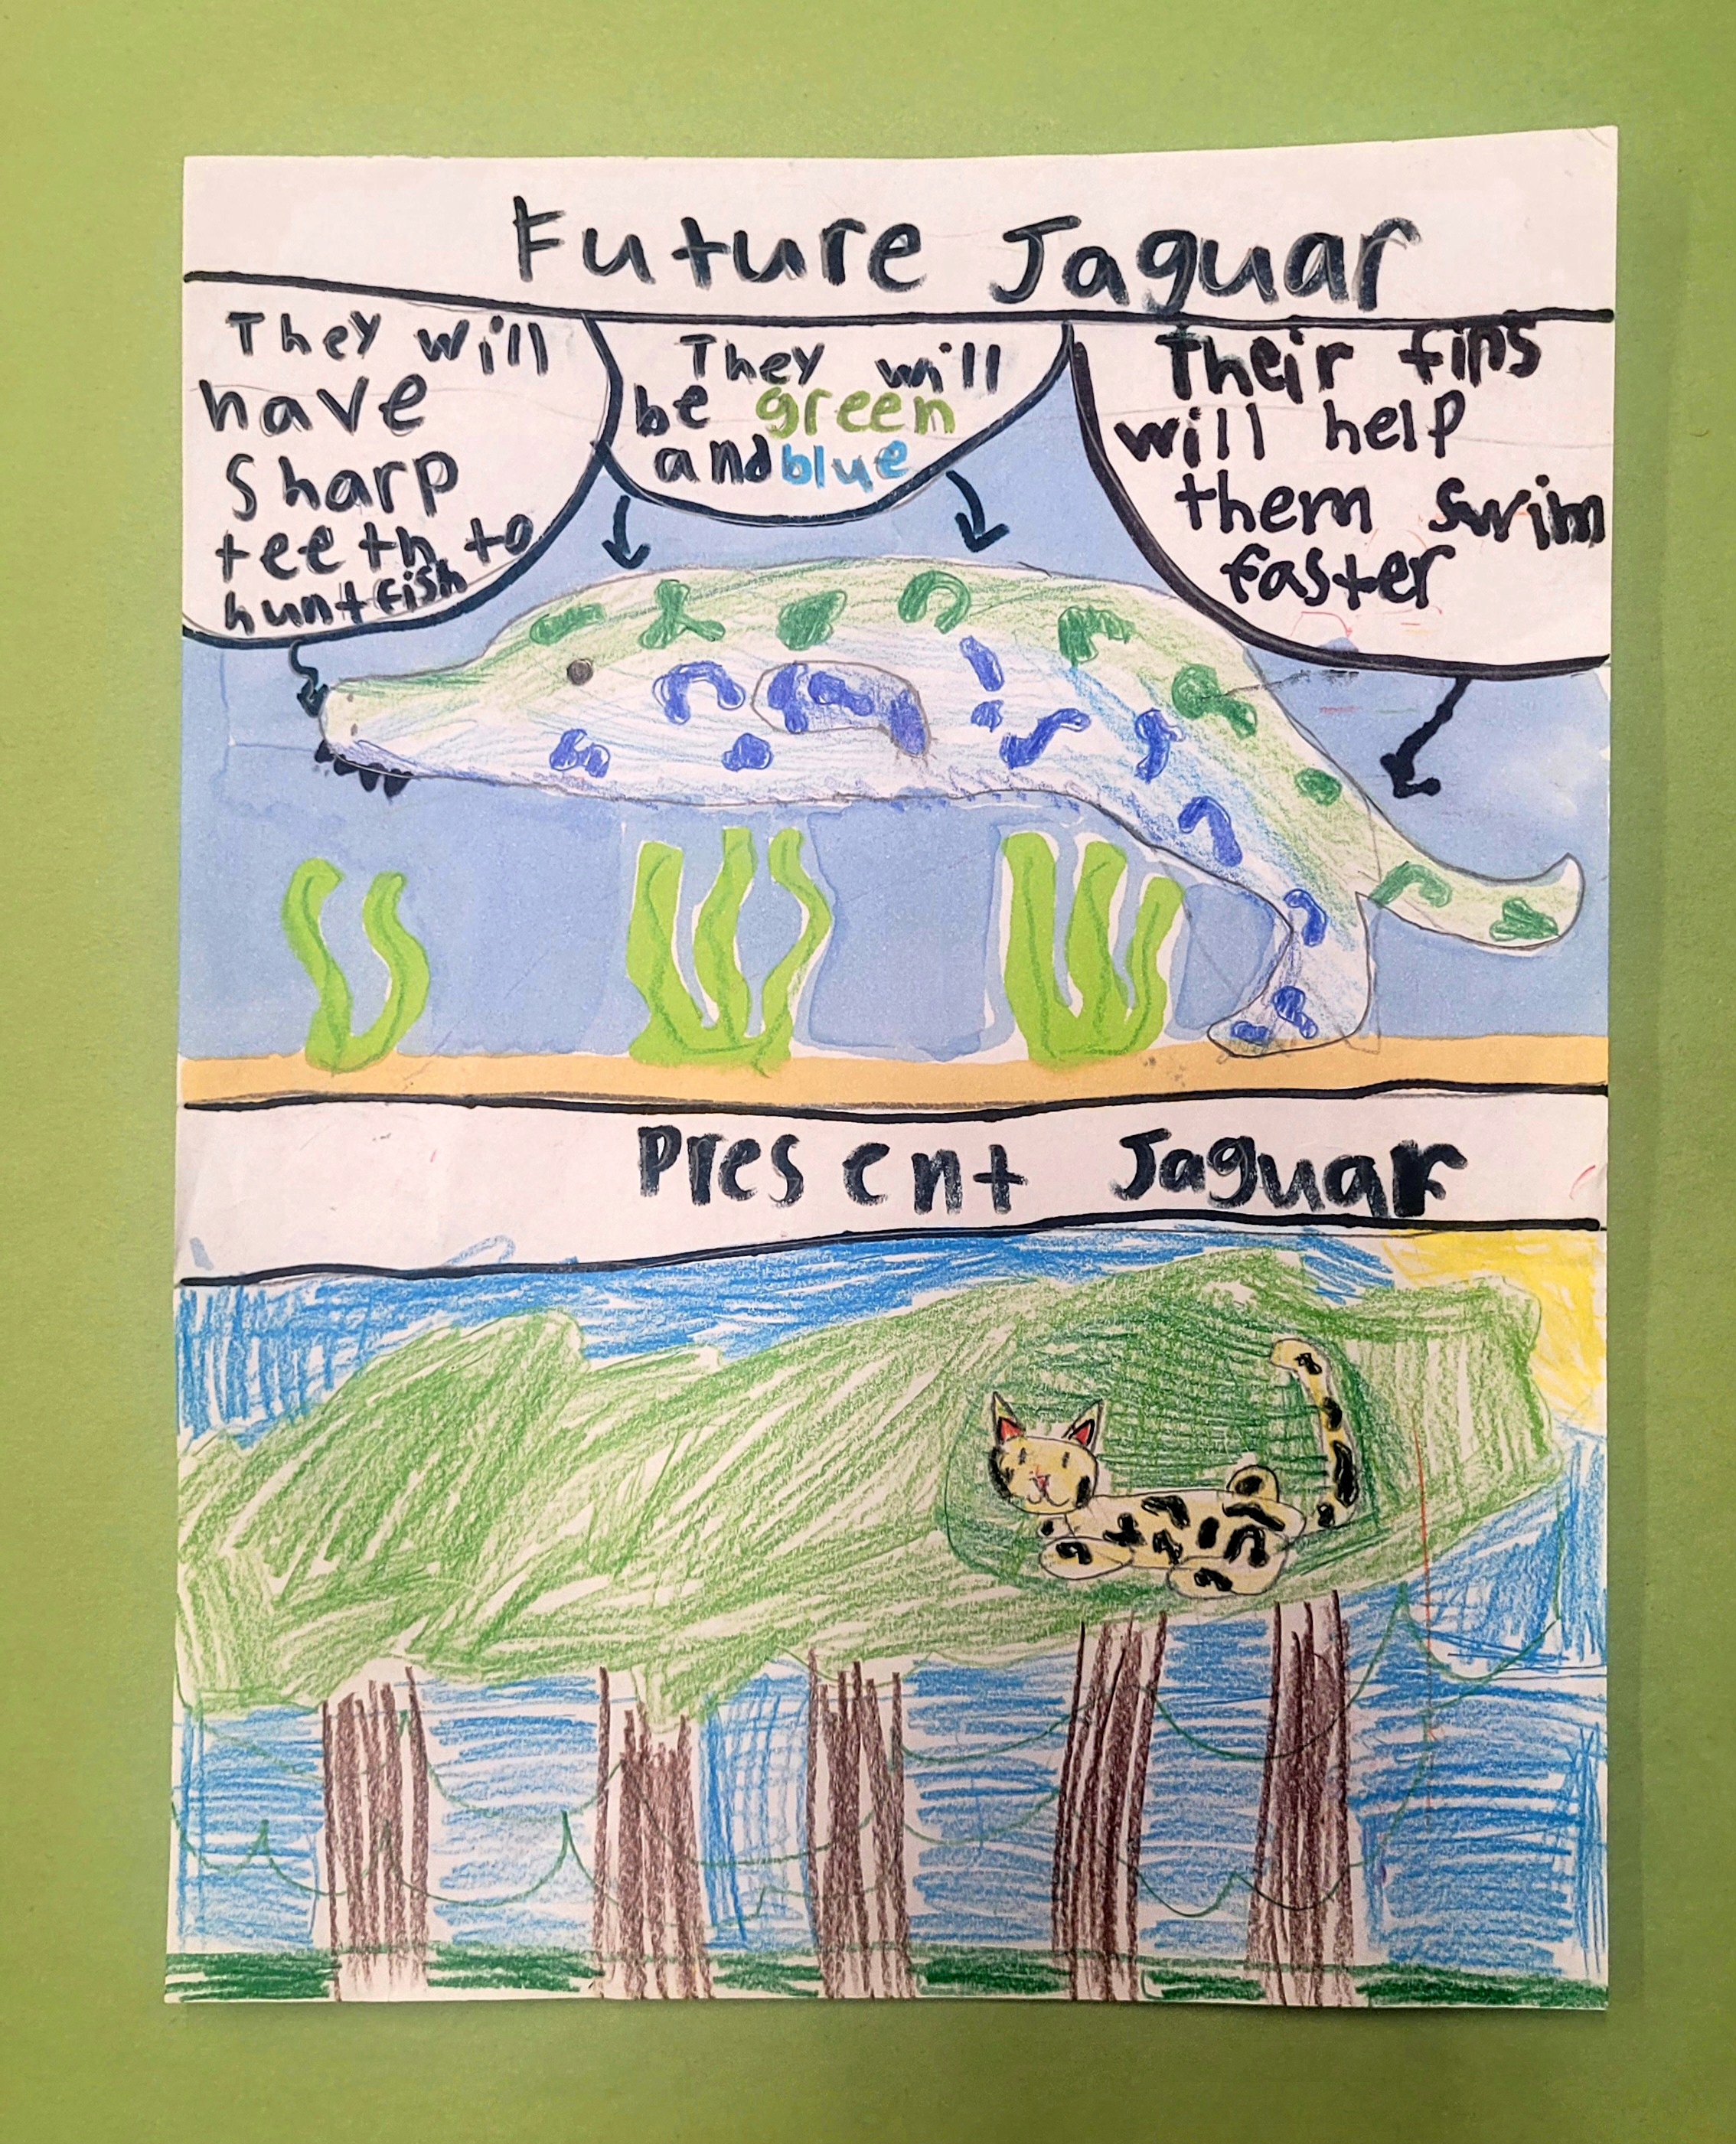 Future Jaguar
They will
have
sharp
teeth to
hunt fish
They will
be green
and blue
Their fins
will help
them swim
faster
Present Jaguar